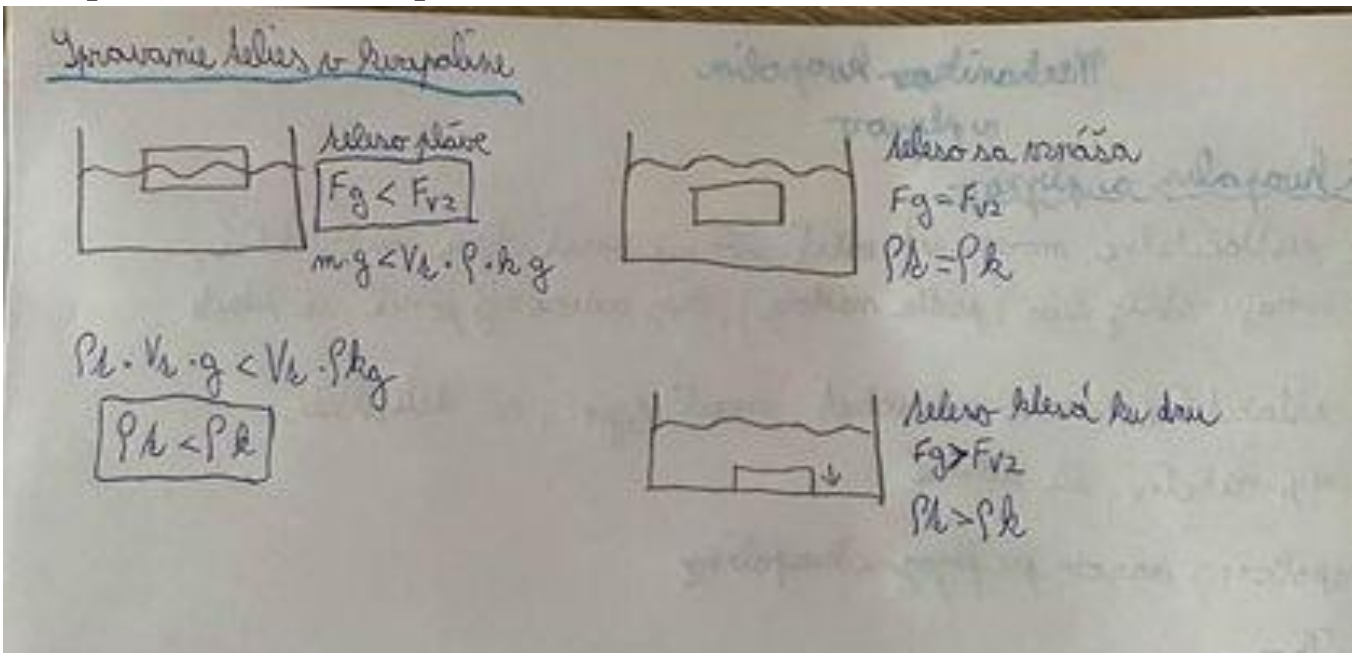 Spravanie telies v kvapaline
teleso pláve
Fg < Fvz
m·g < Vt · ρ · k g
ρt · Vt · g < Vt · ρkg
ρt < ρk
teleso sa vznáša
Fg = Fvz
ρt = ρk
teleso klesá ku dnu
Fg > Fvz
ρt > ρk